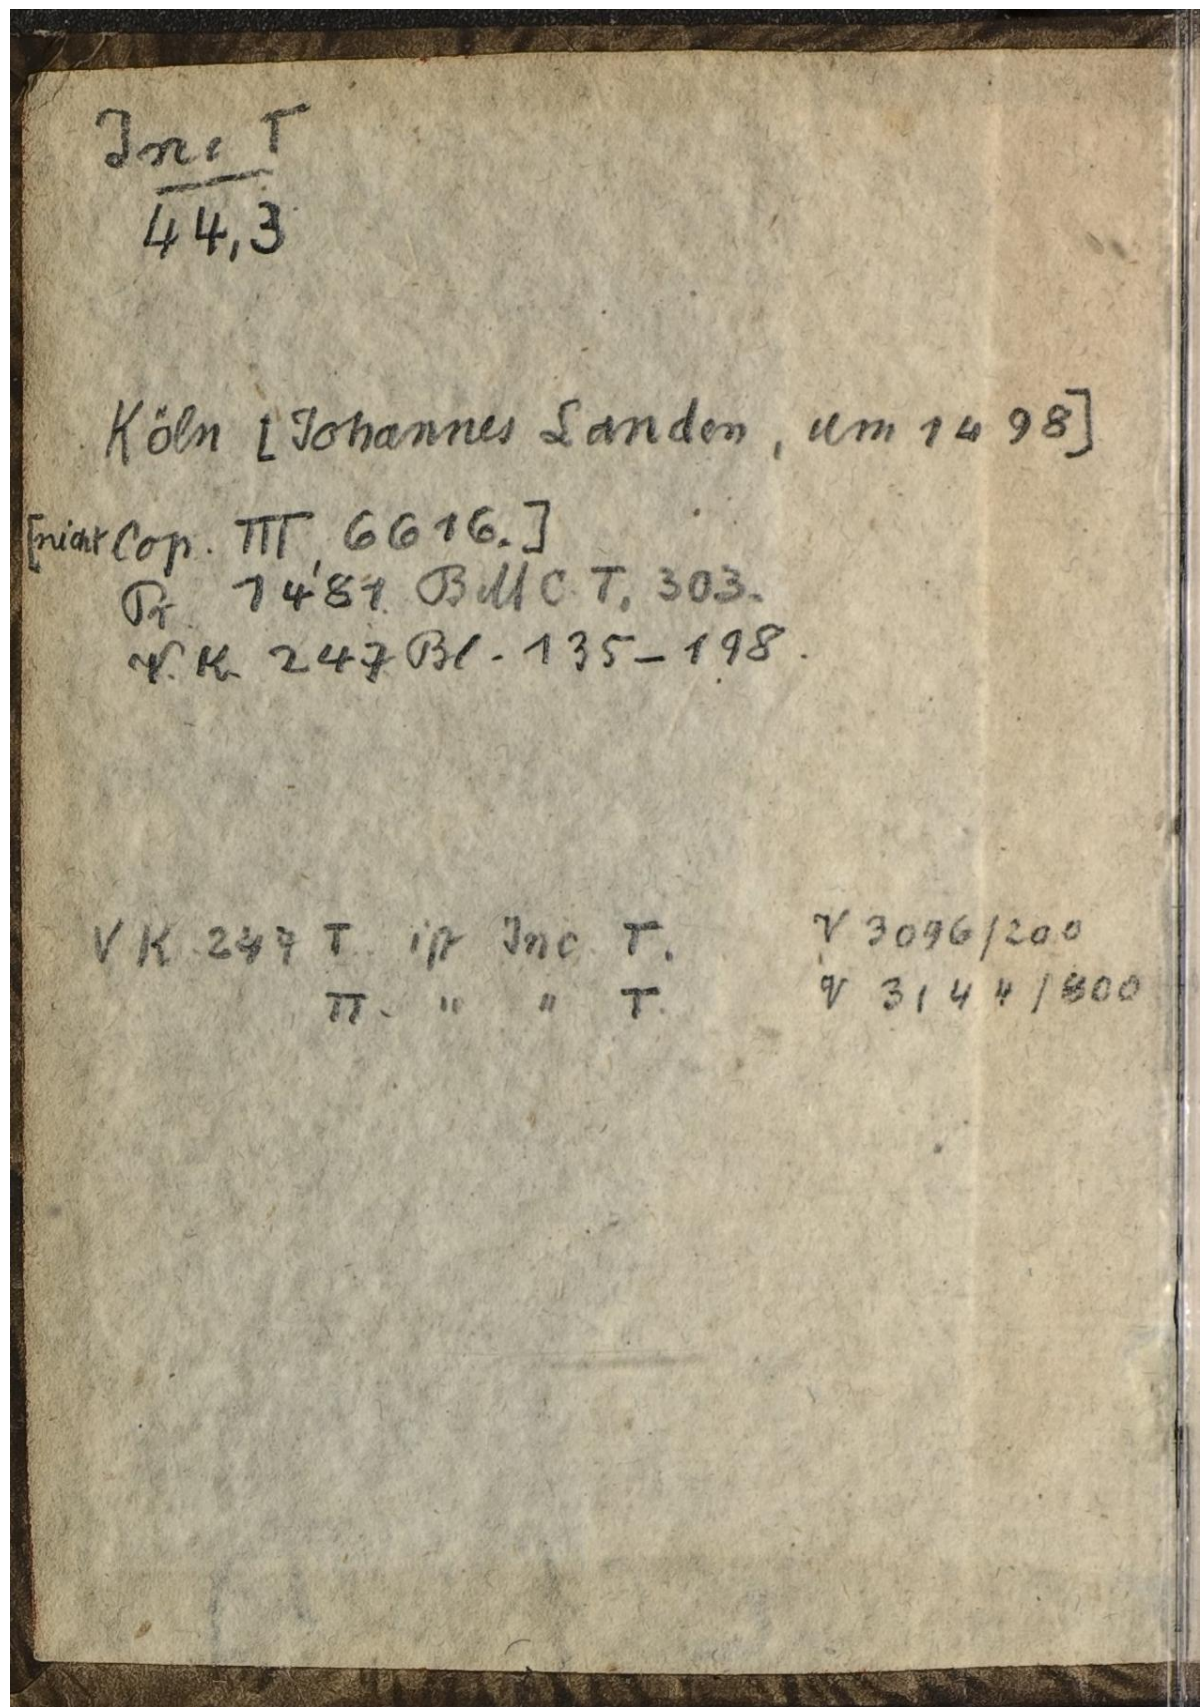 Inc T
44,3
Köln [Johannes Landen, um 1498]
[nicht Cop. III, 6616.]
Pr. 1481 BMC I, 303.
V. K. 247 Bl. 135–198.
VK 247 I ist Inc I. V 3096/200
II. " " I. V 3144/800